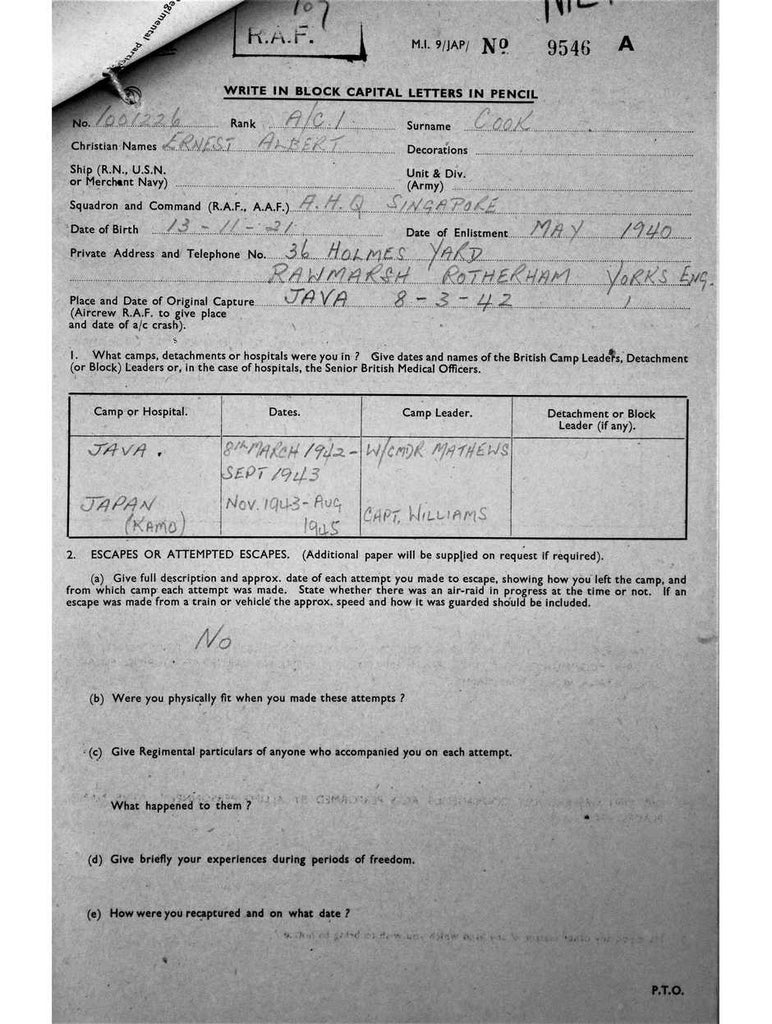 egimental partic
107
R.A.F.
M.I. 9/JAP/ No 9546 A
WRITE IN BLOCK CAPITAL LETTERS IN PENCIL
No. 1001226 Rank A/C.1 Surname COOK
Christian Names ERNEST ALBERT Decorations
Ship (R.N., U.S.N. Unit & Div.
or Merchant Navy) (Army)
Squadron and Command (R.A.F., A.A.F.) A.H.Q SINGAPORE
Date of Birth 13-11-21 Date of Enlistment MAY 1940
Private Address and Telephone No. 36 HOLMES YARD
RAWMARSH ROTHERHAM YORKS ENG.
Place and Date of Original Capture JAVA 8-3-42
(Aircrew R.A.F. to give place
and date of a/c crash).
1. What camps, detachments or hospitals were you in ? Give dates and names of the British Camp Leaders, Detachment
(or Block) Leaders or, in the case of hospitals, the Senior British Medical Officers.
Camp or Hospital. Dates. Camp Leader. Detachment or Block
Leader (if any).
JAVA. 8TH MARCH 1942- W/CMDR MATHEWS
SEPT 1943
JAPAN Nov. 1943-Aug CAPT. WILLIAMS
(KAMO) 1945
2. ESCAPES OR ATTEMPTED ESCAPES. (Additional paper will be supplied on request if required).
(a) Give full description and approx. date of each attempt you made to escape, showing how you left the camp, and
from which camp each attempt was made. State whether there was an air-raid in progress at the time or not. If an
escape was made from a train or vehicle the approx. speed and how it was guarded should be included.
No
(b) Were you physically fit when you made these attempts ?
(c) Give Regimental particulars of anyone who accompanied you on each attempt.
What happened to them ?
(d) Give briefly your experiences during periods of freedom.
(e) How were you recaptured and on what date ?
P.T.O.